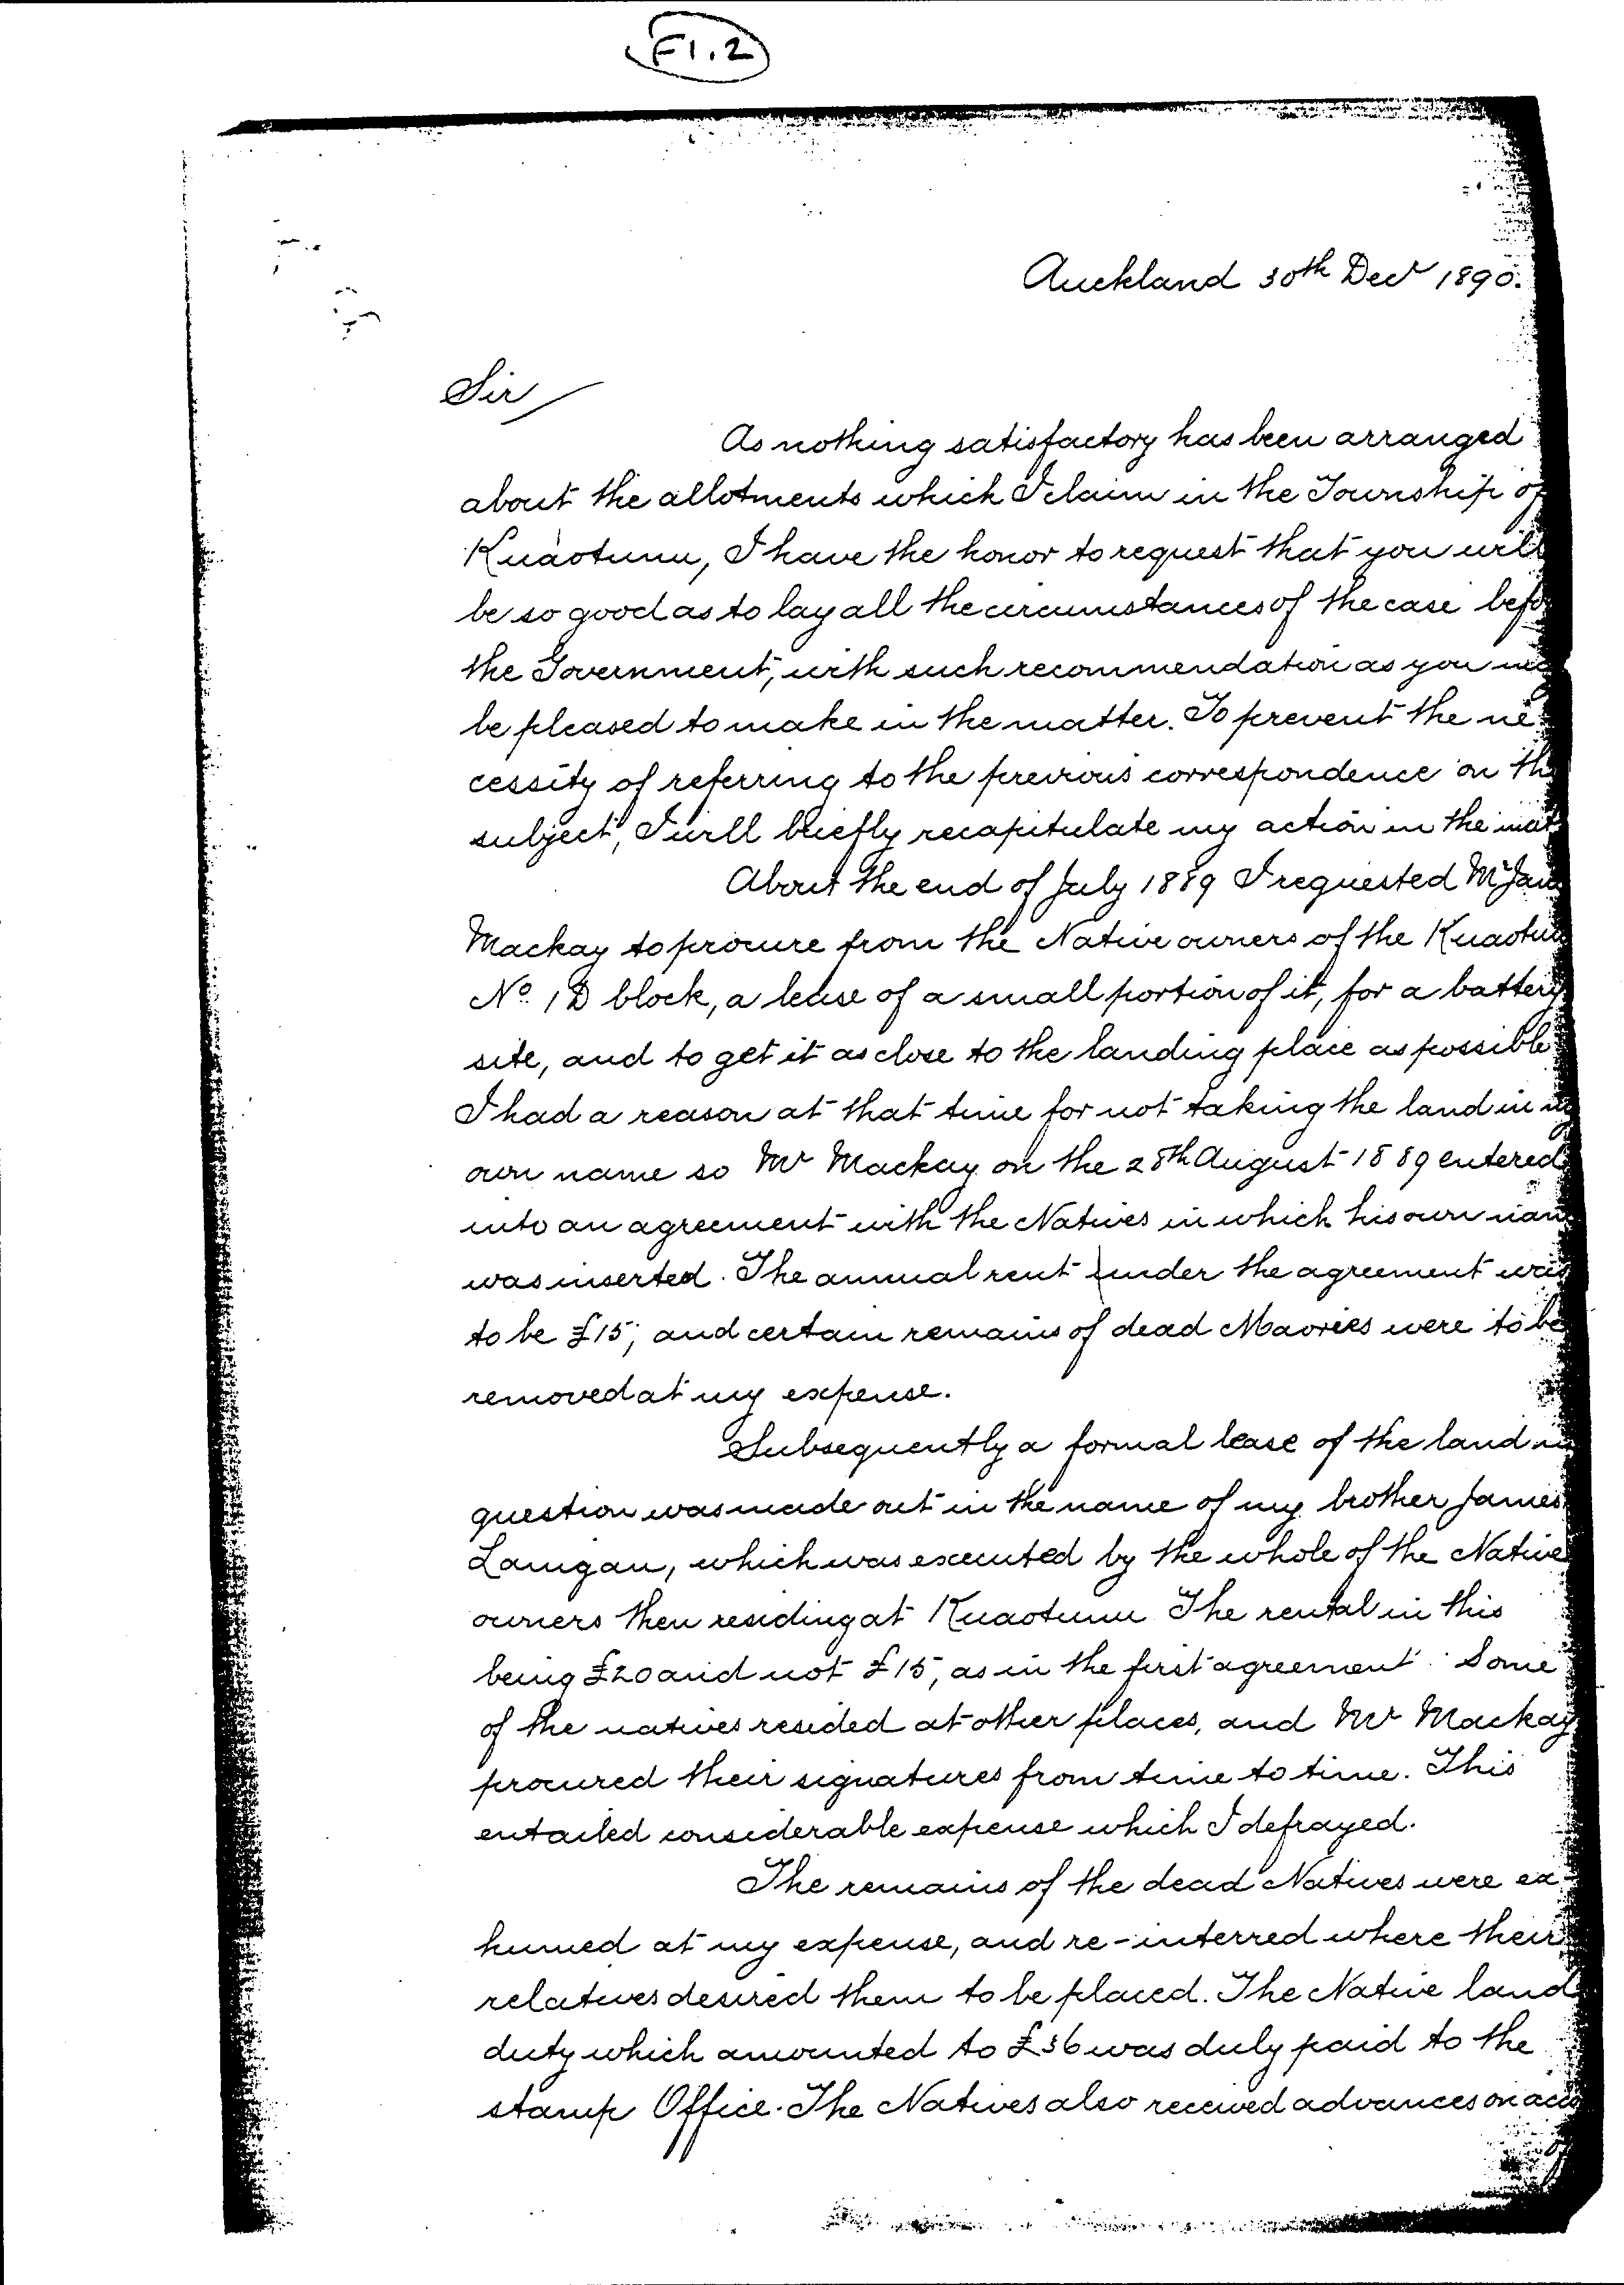 F1.2
Auckland 30th Decr 1890.
Sir
As nothing satisfactory has been arranged
about the allotments which I claim in the Township of
Kuaotunu, I have the honor to request that you will
be so good as to lay all the circumstances of the case befo
the Government, with such recommendation as you may
be pleased to make in the matter. To prevent the ne-
cessity of referring to the previous correspondence on the
subject, I will briefly recapitulate my action in the mat
About the end of July 1889 I requested Mr Jam
Mackay to procure from the Native owners of the Kuaotun
No. 1D block, a lease of a small portion of it, for a battery
site, and to get it as close to the landing place as possible
I had a reason at that time for not taking the land in my
own name so Mr Mackay on the 28th August 1889 entered
into an agreement with the Natives in which his own nam
was inserted. The annual rent under the agreement was
to be £15, and certain remains of dead Maories were to be
removed at my expense.
Subsequently a formal lease of the land in
question was made out in the name of my brother James
Lanigan, which was executed by the whole of the Native
owners then residing at Kuaotunu The rental in this
being £20 and not £15, as in the first agreement. Some
of the natives resided at other places, and Mr Mackay
procured their signatures from time to time. This
entailed considerable expense which I defrayed.
The remains of the dead Natives were ex-
humed at my expense, and re-interred where their
relatives desired them to be placed. The Native land
duty which amounted to £36 was duly paid to the
stamp Office. The Natives also received advances on acco